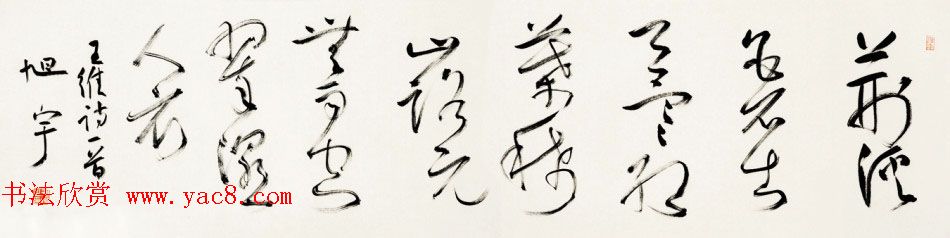 荊溪
白石出
天寒紅
葉稀
山路元
無雨空
翠濕
人衣
王維詩一首
旭宇
书法欣赏 www.yac8.com